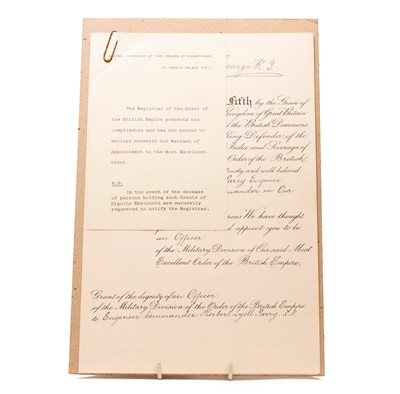 CENTRAL CHANCERY OF THE ORDERS OF KNIGHTHOOD
ST JAMES'S PALACE, S.W.1
The Registrar of the Order of
the British Empire presents his
compliments and has the honour to
enclose herewith the Warrant of
Appointment to the Most Excellent
Order.
N.B.
In the event of the decease
of persons holding such Grants of
Dignity Executors are earnestly
requested to notify the Registrar.
George R.I.
Fifth by the Grace
Kingdom of Great Britain
the British Dominions
King Defender of the
India, and Sovereign of
Order of the British
Trusty and well beloved
Parry Engineer
mander in Our
Whereas We have thought
and appoint you to be
an Officer
of the Military Division of Our said Most
Excellent Order of the British Empire.
Grant of the dignity of an Officer
of the Military Division of the Order of the British Empire
to Engineer Commander Herbert Lyell Parry, R.N.